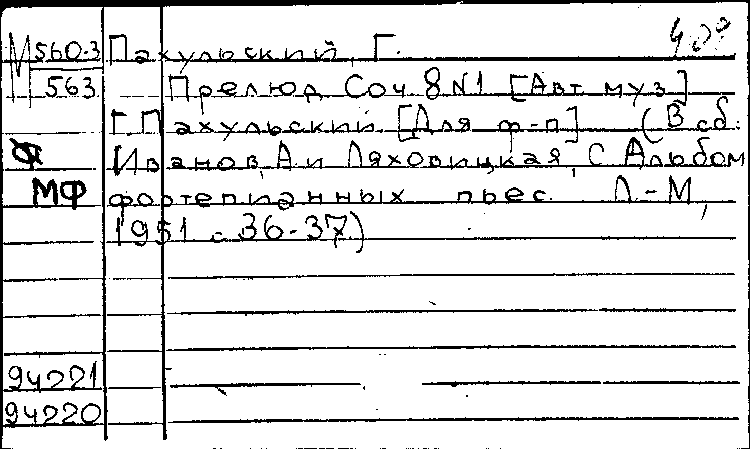 М 560-3 Пахульский, Г.
563 Прелюд Соч. 8 N1 [Авт. муз.]
Г. Пахульский. [Для ф-п] (В сб.:
Иванов, А и Ляховицкая, С. Альбом
МФ фортепианных пьес. Л.-М.,
1951 с. 36-37)
94221
94220